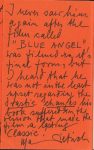 I never saw him
again after the
film called
"BLUE ANGEL"
was filmed in it's
final form, but
I heard that he
was not in the least
upset regarding the
drastic changes his
book suffered in the
version that made the
film a lasting
"Classic".